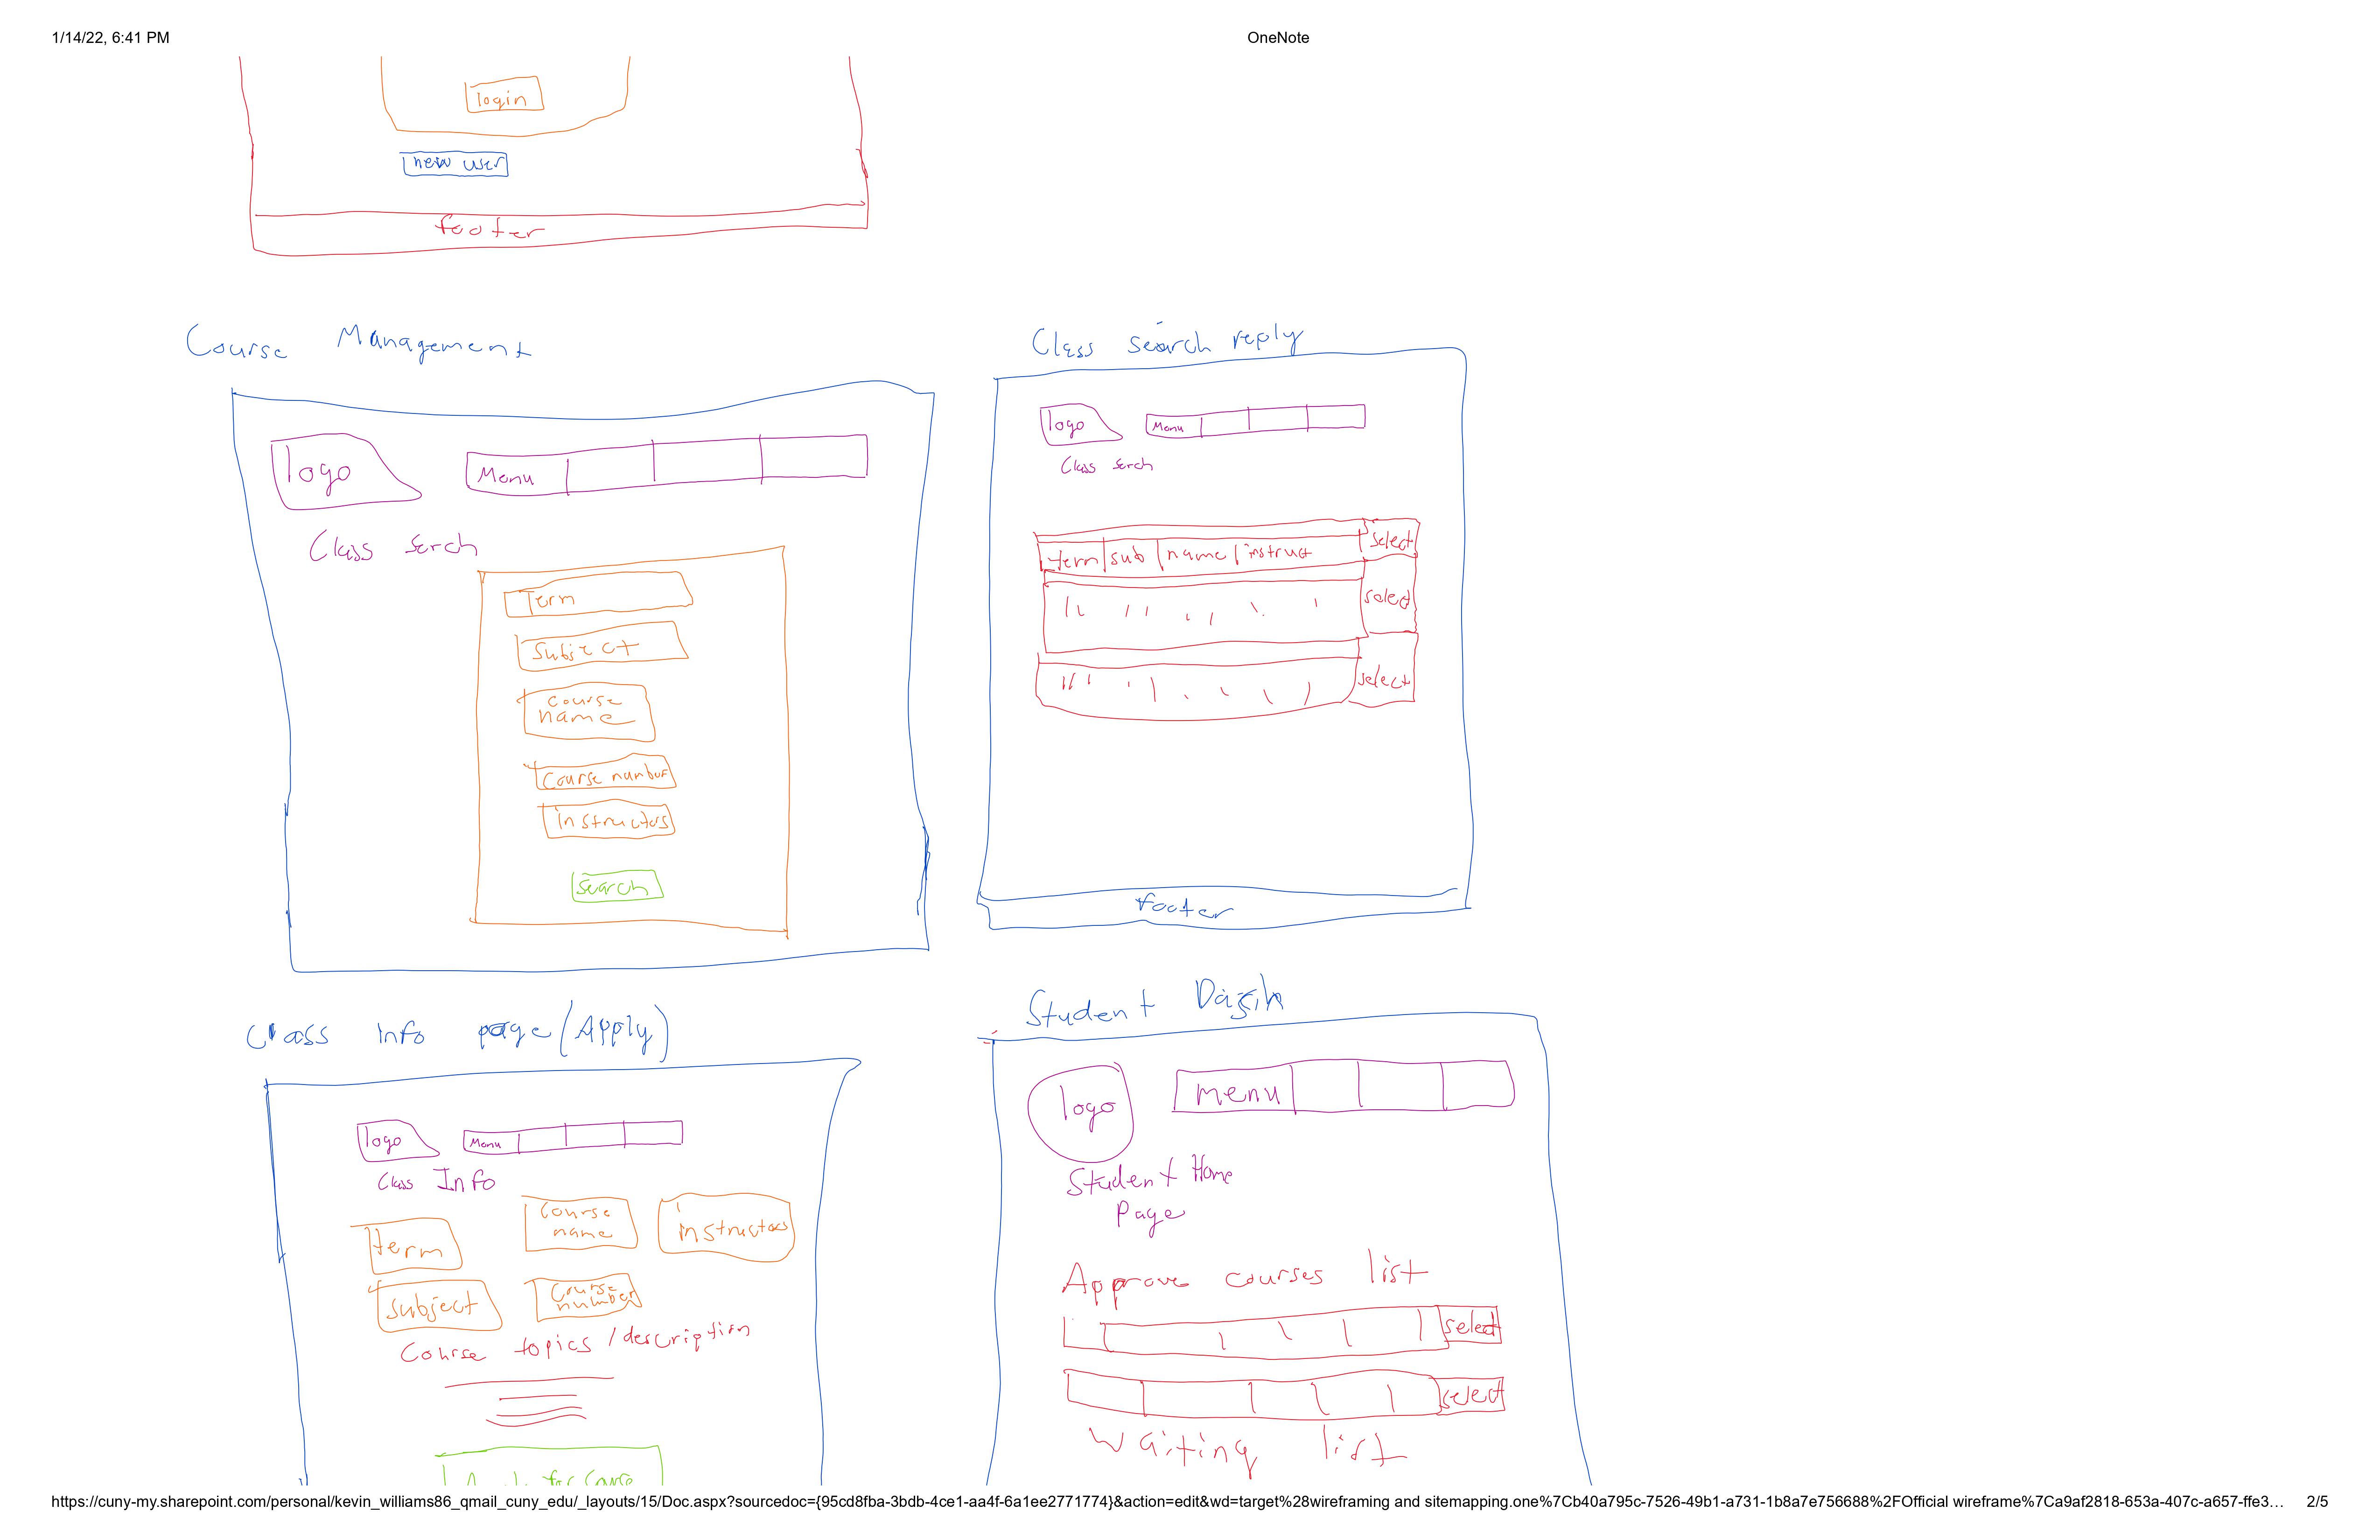 1/14/22, 6:41 PM
OneNote
login
new user
footer
Course Management
logo
Menu
Class Serch
Term
Subject
Course
name
Course number
instructors
Search
Class search reply
logo
Menu
Class Serch
term sub name instruct select
select
select
footer
Class info page (Apply)
logo
Menu
Class Info
term
Course
name
instructors
subject
Course
number
Course topics / description
for Course
Student
logo
menu
Student Home
Page
Approve courses list
select
select
Waiting list
https://cuny-my.sharepoint.com/personal/kevin_williams86_qmail_cuny_edu/_layouts/15/Doc.aspx?sourcedoc={95cd8fba-3bdb-4ce1-aa4f-6a1ee2771774}&action=edit&wd=target%28wireframing and sitemapping.one%7Cb40a795c-7526-49b1-a731-1b8a7e756688%2FOfficial wireframe%7Ca9af2818-653a-407c-a657-ffe3…
2/5